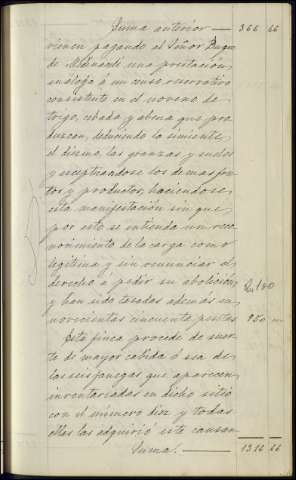 Suma anterior — 366 66
vienen pagando al Señor Duque
de Medinaceli una prestación
análoga á un censo reservativo
consistente en el noveno de
trigo, cebada y abena que pro-
duzcan, deduciendo la simiente,
el diezmo, las granzas y suelos
y exceptuandose los demas fru-
tos y productos, haciendose
esta manifestación sin que
por esto se entienda un reco-
nocimiento de la carga como
legitima y sin renunciar el
derecho á pedir su abolición,
y han sido tasadas además en
novecientas cincuenta pesetas 950 "
Esta finca procede de suer-
te de mayor cabida ó sea de
las seis fanegas que aparecen
inventariadas en dicho sitio
con el número diez y todas
ellas las adquirió este causan-
Suma. — 1316 66